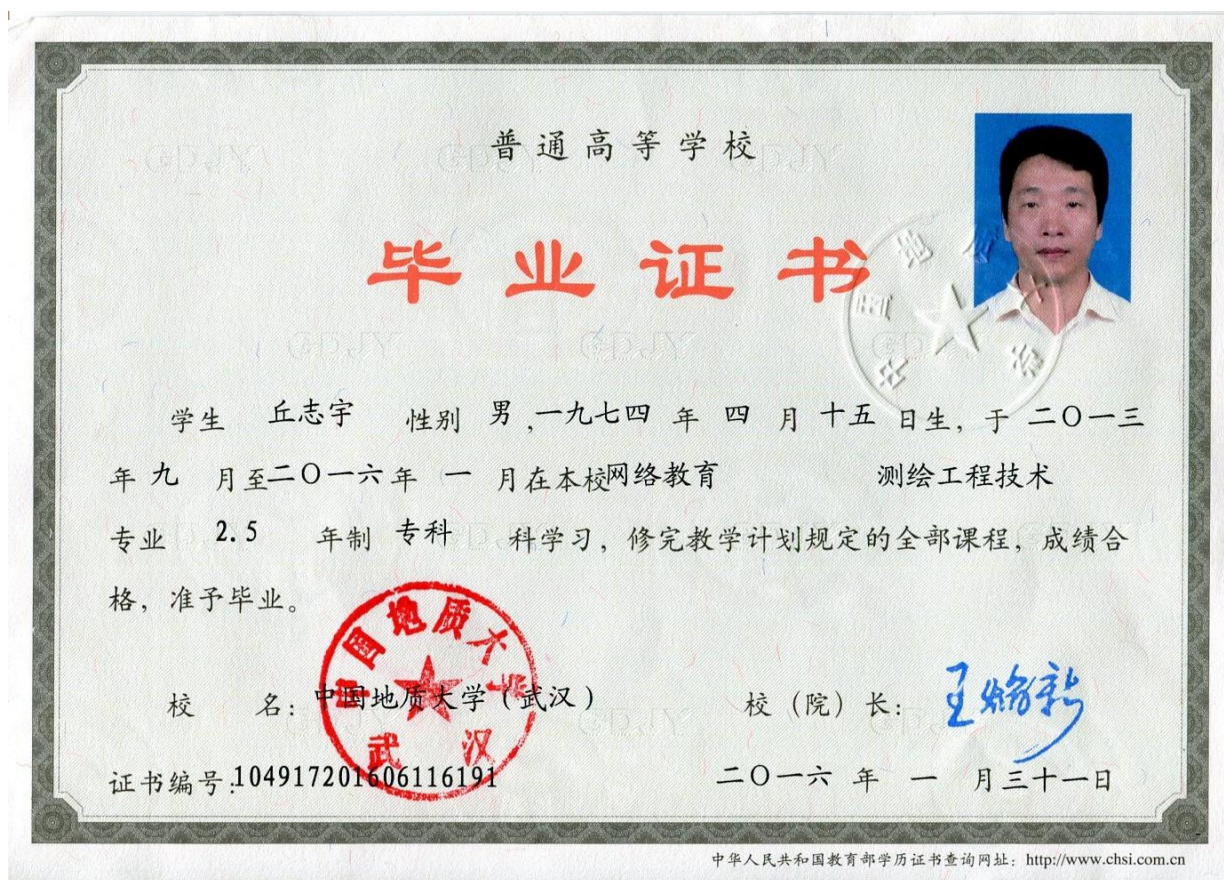 普通高等学校
毕业证书
学生 丘志宇 性别 男，一九七四 年 四 月 十五 日生，于 二〇一三
年 九 月至二〇一六年 一 月在本校网络教育 测绘工程技术
专业 2.5 年制 专科 科学习，修完教学计划规定的全部课程，成绩合
格，准予毕业。
中国地质大学
武汉
校 名：中国地质大学（武汉） 校（院）长：王焰新
证书编号：104917201606116191 二〇一六 年 一 月三十一日
中华人民共和国教育部学历证书查询网址：http://www.chsi.com.cn